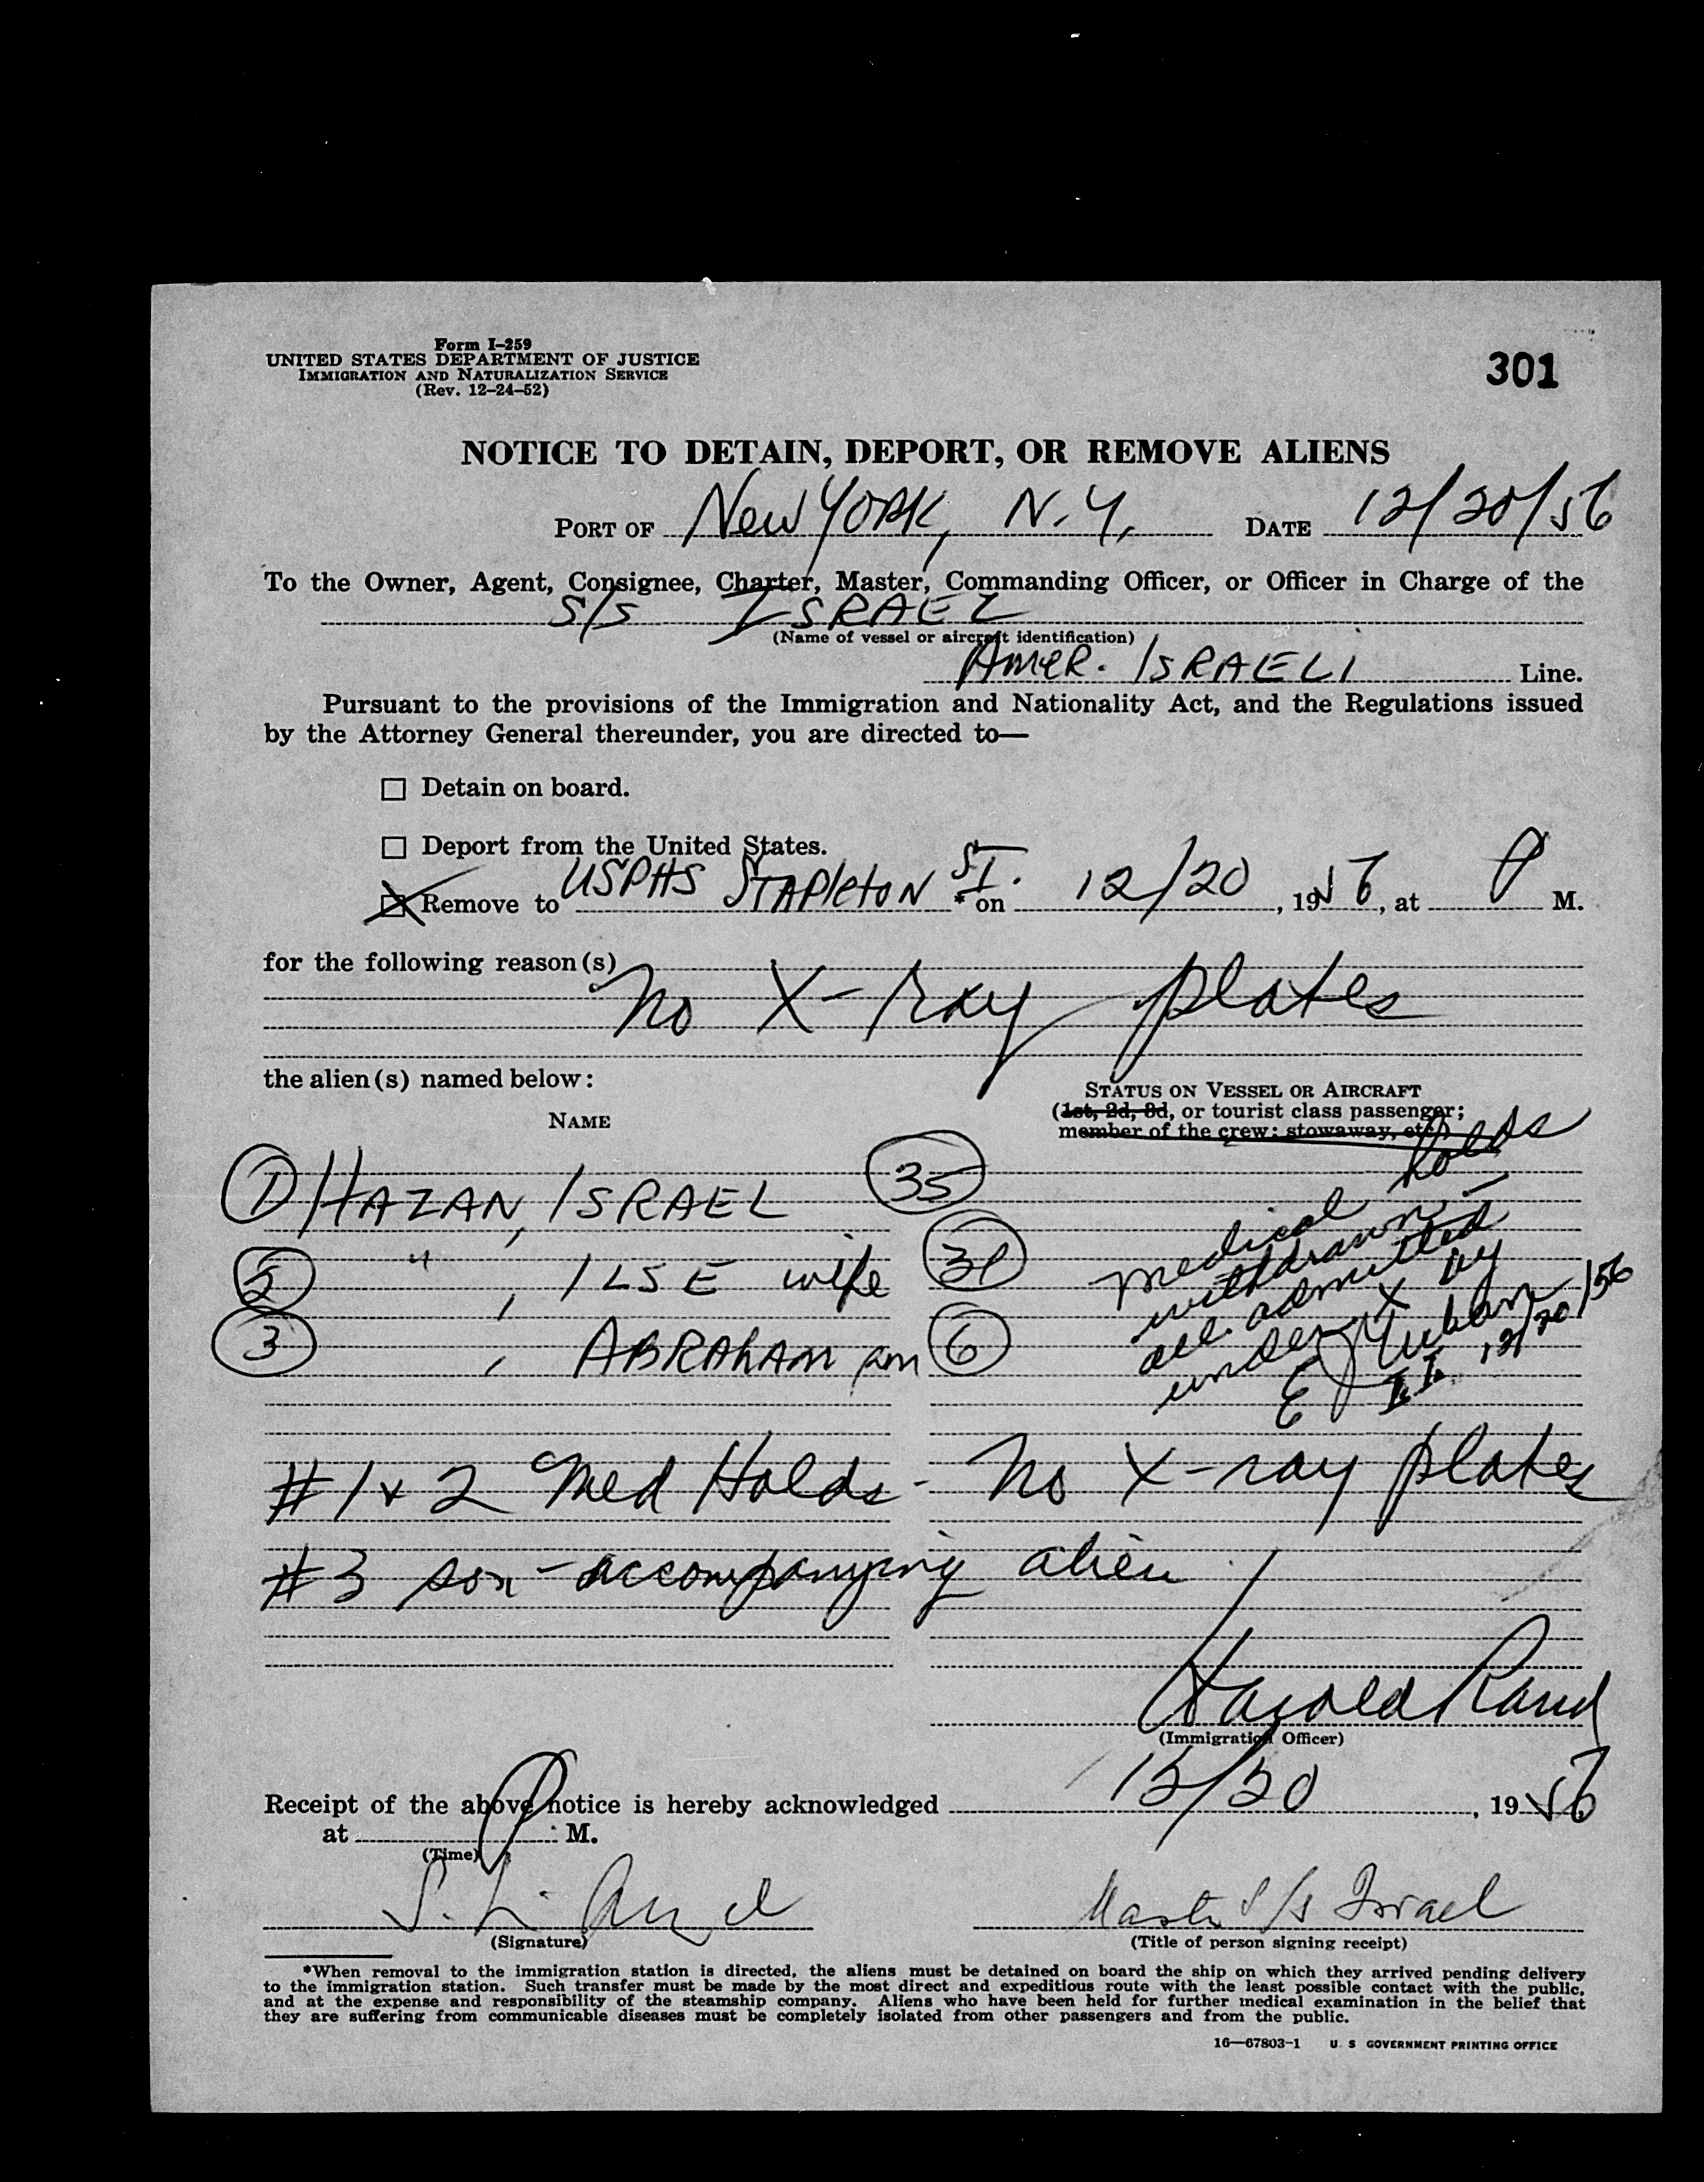 Form I-259
UNITED STATES DEPARTMENT OF JUSTICE
IMMIGRATION AND NATURALIZATION SERVICE
(Rev. 12-24-52)
301
NOTICE TO DETAIN, DEPORT, OR REMOVE ALIENS
PORT OF New YORK, N.Y. DATE 12/20/56
To the Owner, Agent, Consignee, Charter, Master, Commanding Officer, or Officer in Charge of the
S/S ISRAEL
(Name of vessel or aircraft identification)
AMER. ISRAELI Line.
Pursuant to the provisions of the Immigration and Nationality Act, and the Regulations issued
by the Attorney General thereunder, you are directed to—
Detain on board.
Deport from the United States.
Remove to USPHS STAPleTON S.I. * on 12/20, 1956, at P M.
for the following reason(s)
No X-Ray plates
the alien(s) named below:
NAME
STATUS ON VESSEL OR AIRCRAFT
(1st, 2d, 3d, or tourist class passenger;
member of the crew; stowaway, etc.)
1 HAZAN, ISRAEL 35
2 " , ILSE wife 31
3 , ABRAHAM son 6
medical holds
withdrawn -
all admitted
under X by
E
I.I. 12/20/56
#1 + 2 Med Holds - No X-ray plates
#3 son - accompanying alien
Harold Rand
(Immigration Officer)
Receipt of the above notice is hereby acknowledged 12/20, 1956
at P M.
(Time)
Master S/S Israel
(Signature)
(Title of person signing receipt)
*When removal to the immigration station is directed, the aliens must be detained on board the ship on which they arrived pending delivery
to the immigration station. Such transfer must be made by the most direct and expeditious route with the least possible contact with the public,
and at the expense and responsibility of the steamship company. Aliens who have been held for further medical examination in the belief that
they are suffering from communicable diseases must be completely isolated from other passengers and from the public.
16—67803-1 U. S. GOVERNMENT PRINTING OFFICE